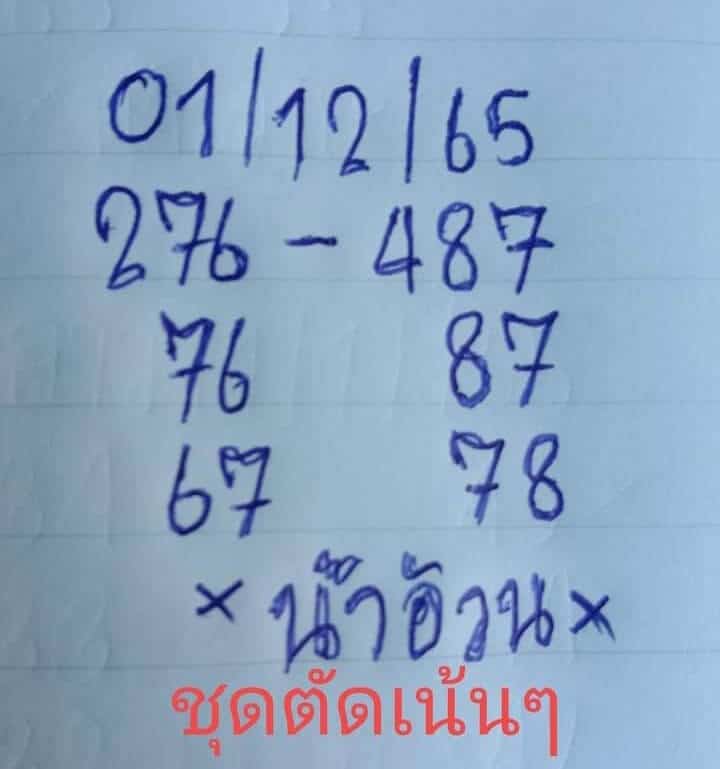 01/12/65
276 - 487
76 87
67 78
× น้ำอ้วน ×
ชุดตัดเน้นๆ